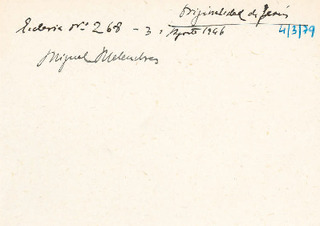 Originalidad de Jesús
Ecclesia Nº 268 - 3, Agosto 1946
4/3/79
Miguel Melendres